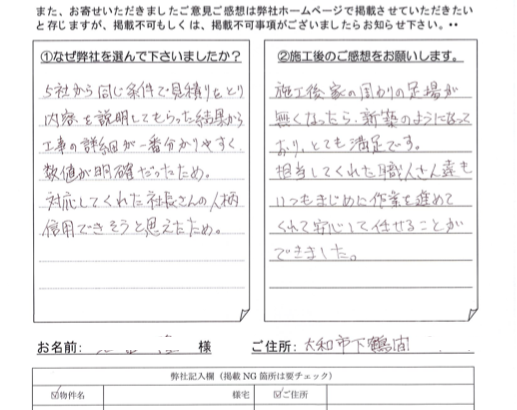 また、お寄せいただきましたご意見ご感想は弊社ホームページで掲載させていただきたい
と存じますが、掲載不可もしくは、掲載不可事項がございましたらお知らせ下さい。••
①なぜ弊社を選んで下さいましたか？
5社から同じ条件で見積りをとり
内容を説明してもらった結果から
工事の詳細が一番分かりやすく、
数値が明確だったため。
対応してくれた社長さんの人柄
信用できそうと思えたため。
②施工後のご感想をお願いします。
施工後、家の周りの足場が
無くなったら、新築のようになって
おり、とても満足です。
担当してくれた職人さん達も
いつもまじめに作業を進めて
くれて安心して任せることが
できました。
お名前: 様 ご住所: 大和市下鶴間
弊社記入欄（掲載 NG 箇所は要チェック）
☑物件名 様宅 ☑ご住所